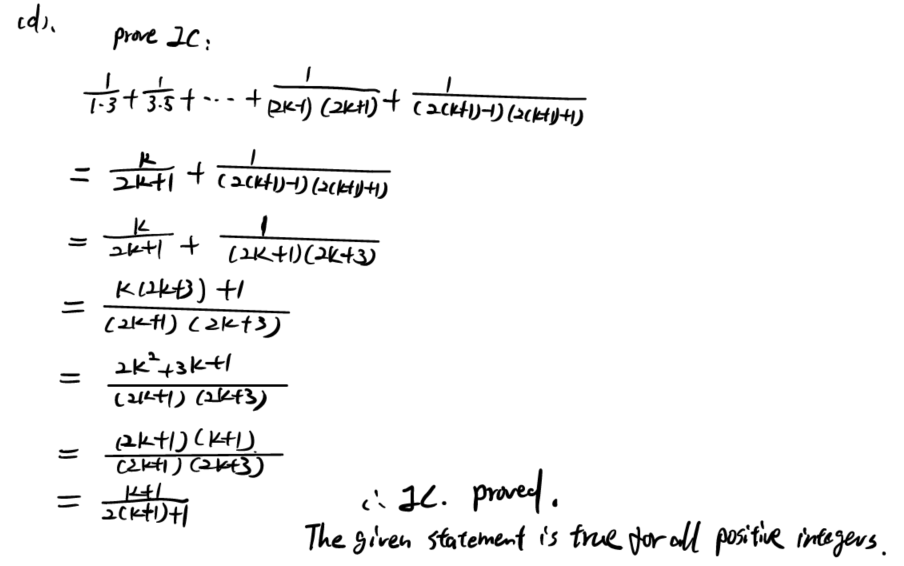 (d).
prove IC:
1/(1·3) + 1/(3·5) + ··· + 1/((2k-1)(2k+1)) + 1/((2(k+1)-1)(2(k+1)+1))
= k/(2k+1) + 1/((2(k+1)-1)(2(k+1)+1))
= k/(2k+1) + 1/((2k+1)(2k+3))
= (k(2k+3)+1)/((2k+1)(2k+3))
= (2k²+3k+1)/((2k+1)(2k+3))
= ((2k+1)(k+1))/((2k+1)(2k+3))
= (k+1)/(2(k+1)+1)
∴ IC. proved.
The given statement is true for all positive integers.